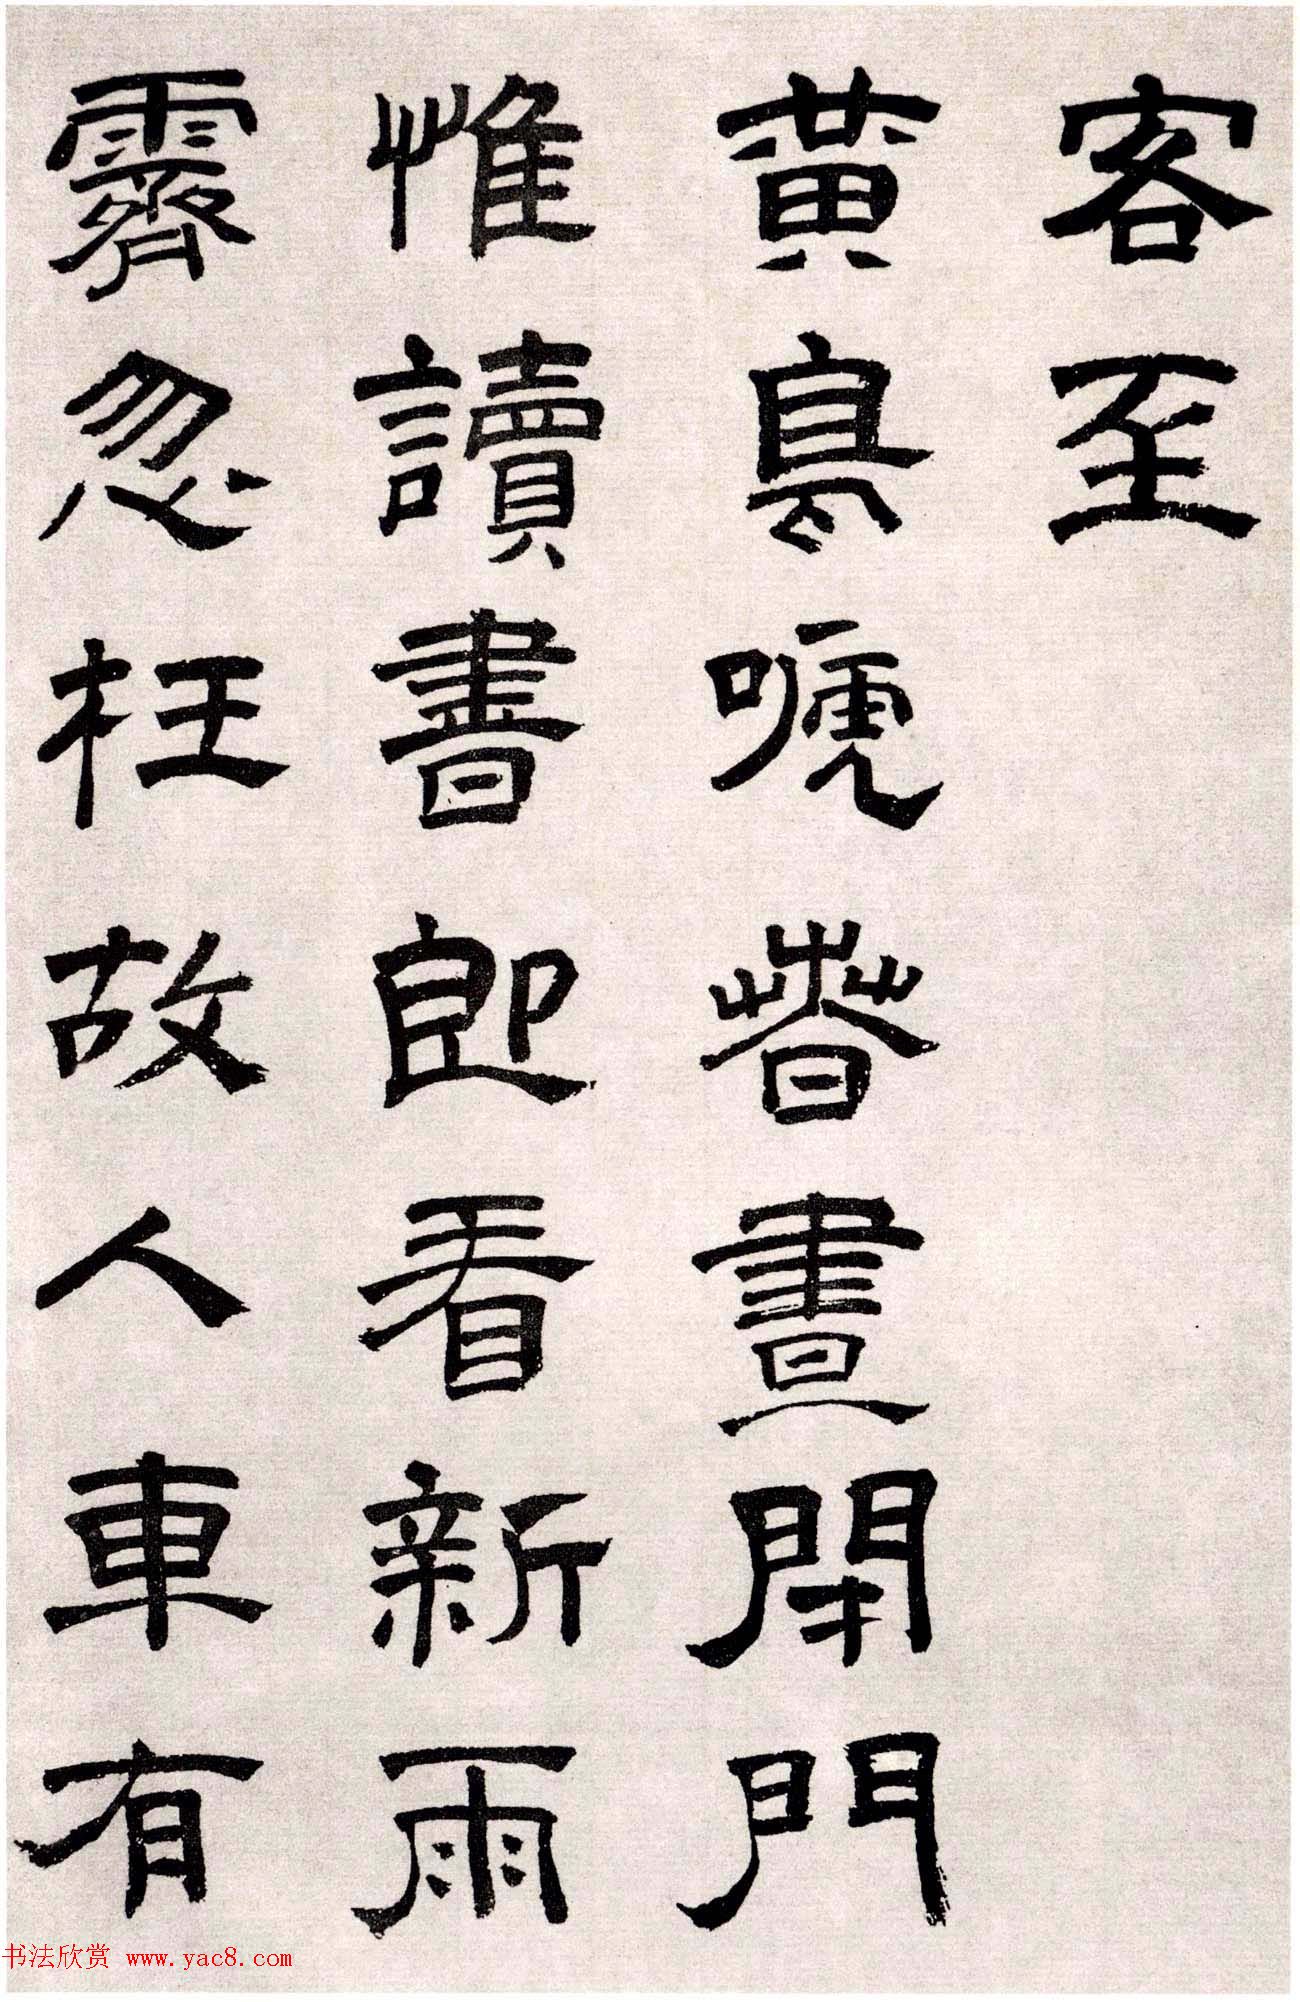 客至
黃鳥嗁春晝閉門
惟讀書即看新雨
霽忽枉故人車有
书法欣赏 www.yac8.com